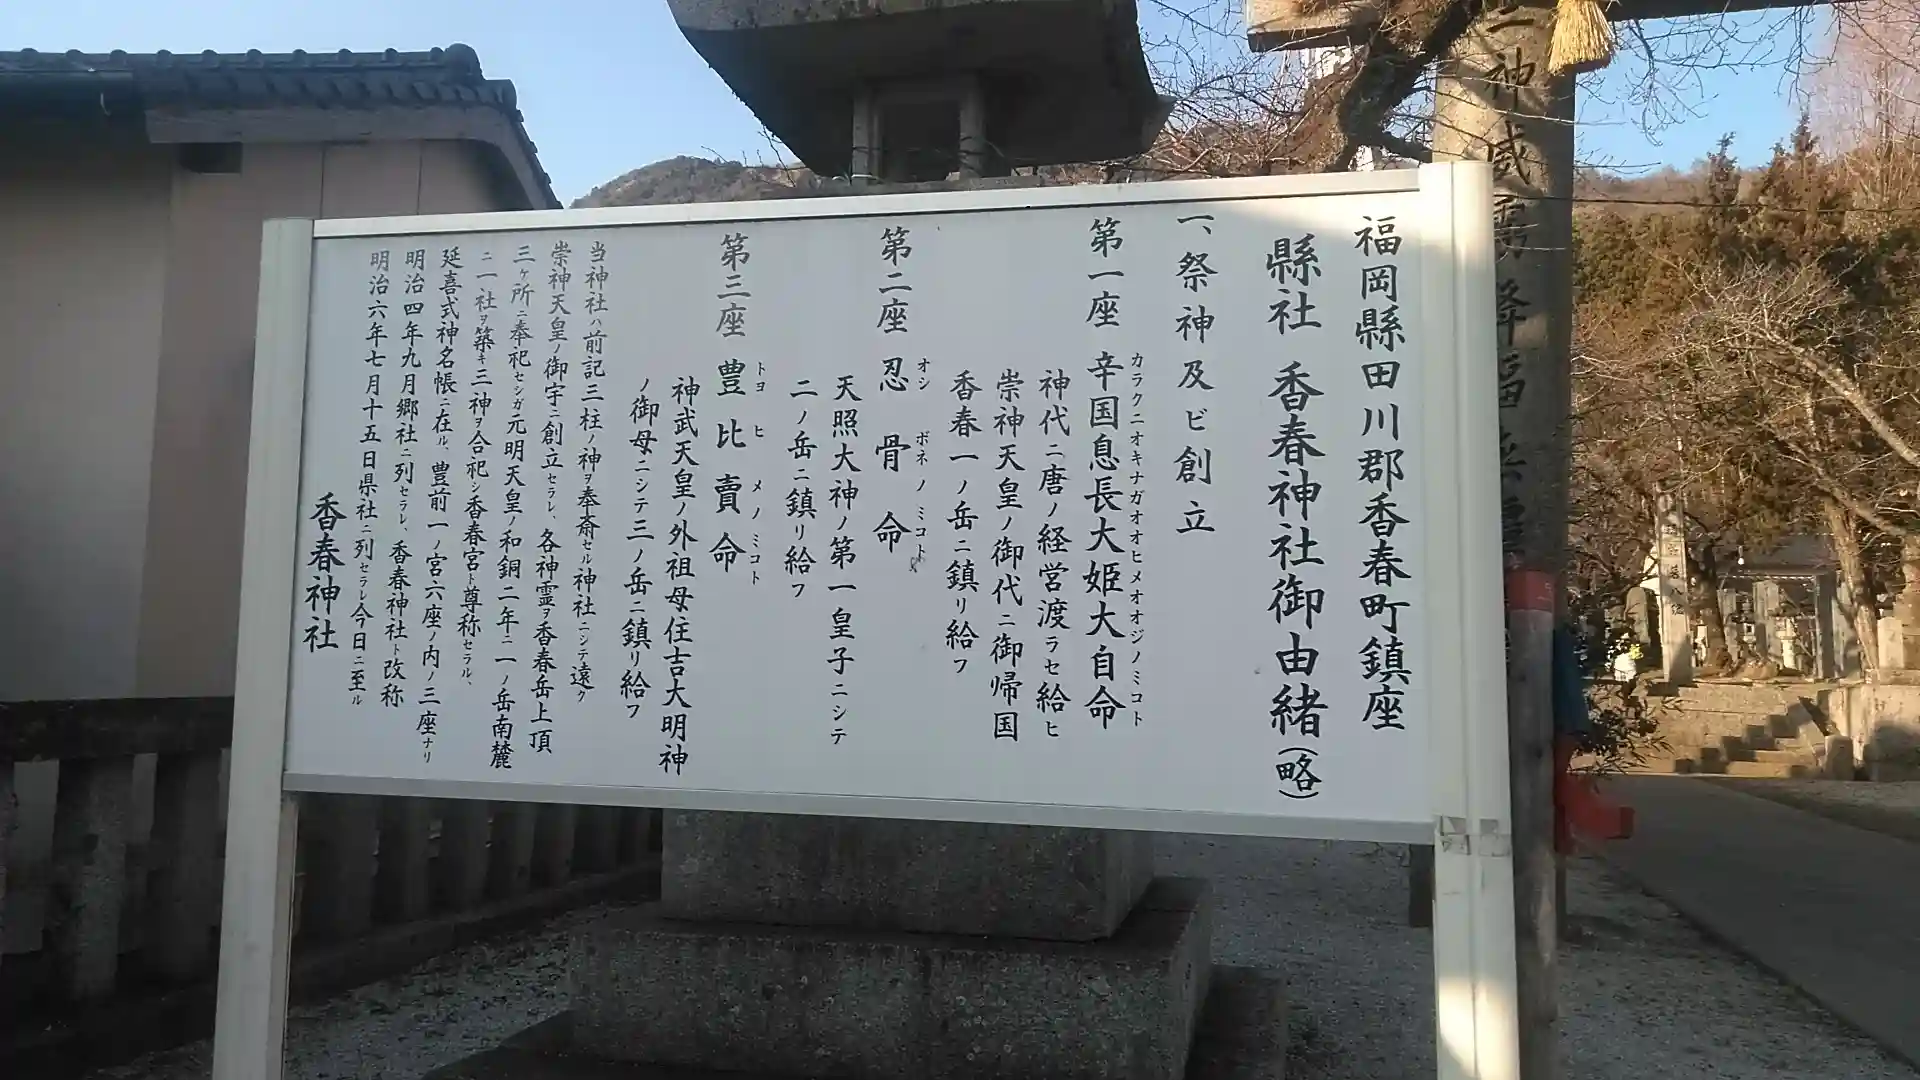 福岡縣田川郡香春町鎮座
縣社 香春神社御由緒(略)
一、祭神及ビ創立
第一座 辛国息長大姫大自命
カラクニオキナガオオヒメオオジノミコト
神代ニ唐ノ経営渡ラセ給ヒ
崇神天皇ノ御代ニ御帰国
香春一ノ岳ニ鎮リ給フ
第二座 忍骨命
オシボネノミコト
天照大神ノ第一皇子ニシテ
二ノ岳ニ鎮リ給フ
第三座 豊比賣命
トヨヒメノミコト
神武天皇ノ外祖母住吉大明神
ノ御母ニシテ三ノ岳ニ鎮リ給フ
当神社ハ前記三柱ノ神ヲ奉斎セル神社ニシテ遠ク
崇神天皇ノ御宇ニ創立セラレ、各神霊ヲ香春岳上頂
三ヶ所ニ奉祀セシガ元明天皇ノ和銅二年ニ一ノ岳南麓
ニ一社ヲ築キ三神ヲ合祀シ香春宮ト尊称セラル、
延喜式神名帳ニ在ル、豊前一ノ宮六座ノ内ノ三座ナリ
明治四年九月郷社ニ列セラレ、香春神社ト改称
明治六年七月十五日県社ニ列セラレ今日ニ至ル
香春神社